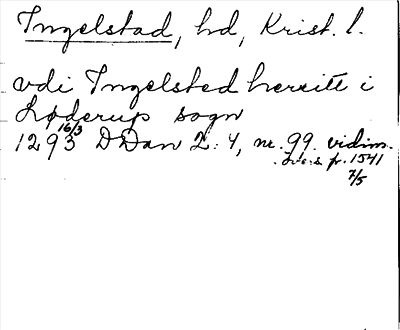 Ingelstad, hd, Krist. l.
vdi Ingelsted herritt i
Løderup sogn
16/3
1293 DDan 2:4, nr. 99. vidim.
övers fr. 1541
7/5